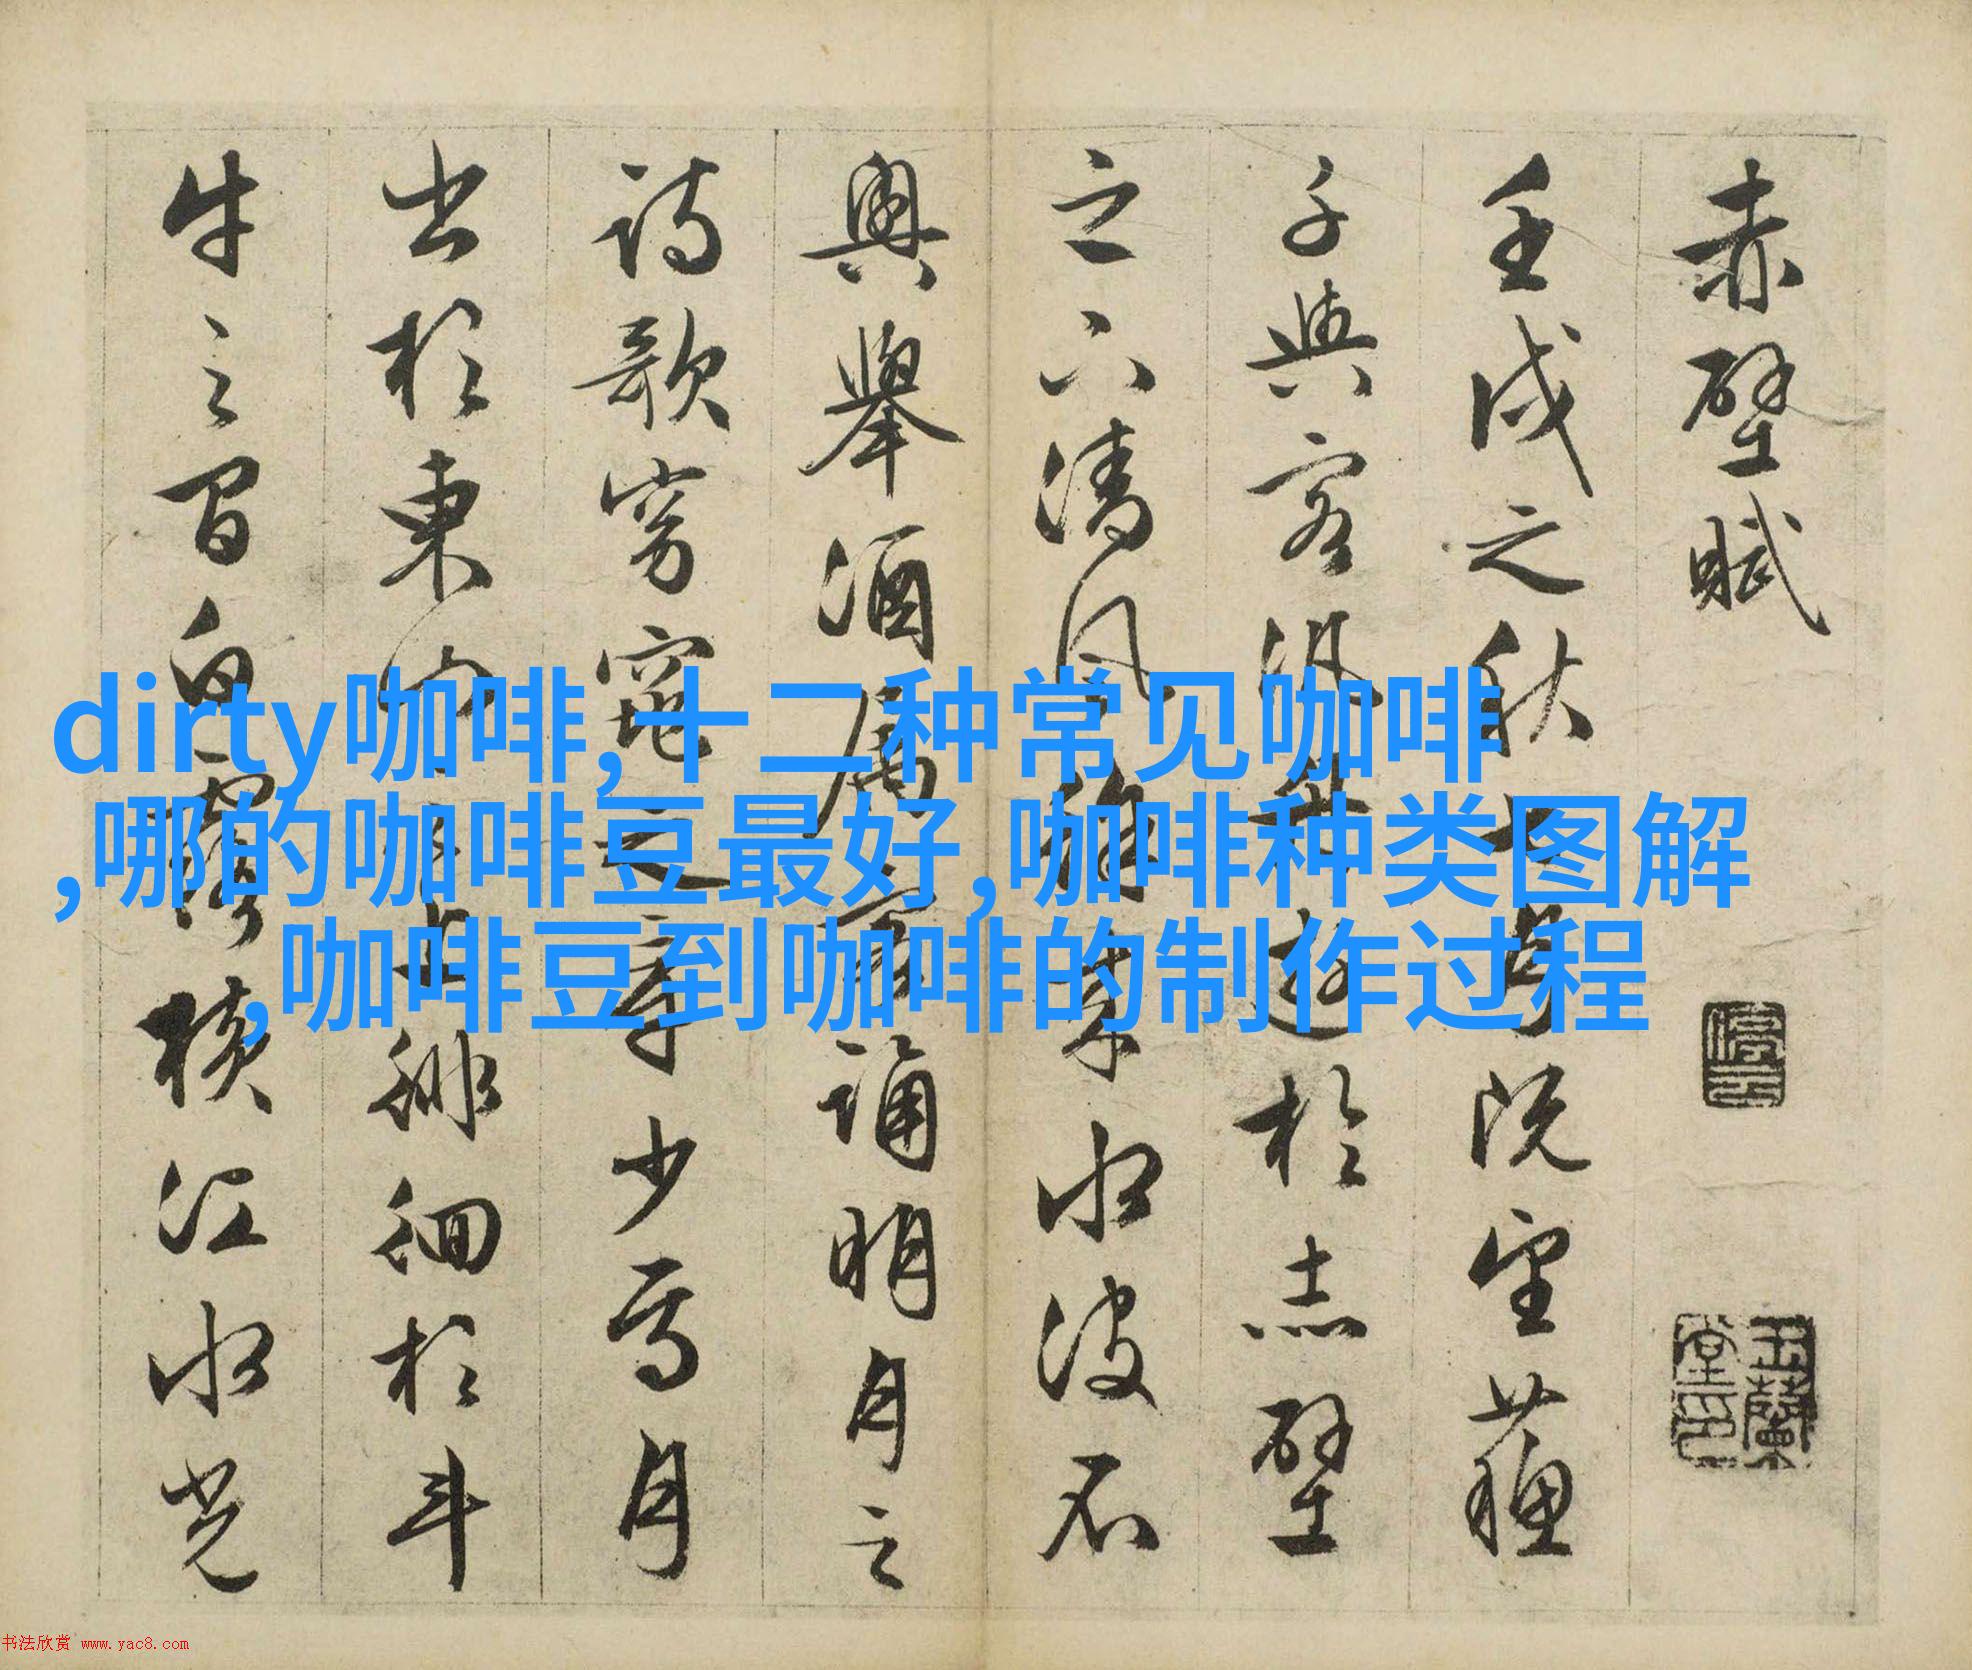 赤壁賦
壬戌之秋七月既望蘇
子與客汎舟遊於赤壁
之下清風徐來水波不
興舉酒屬客誦明月之
詩歌窈窕之章少焉月
出於東山之上徘徊於斗
牛之間白露橫江水光
停云
玉蘭堂印
dirty咖啡,十二种常见咖啡
,哪的咖啡豆最好,咖啡种类图解
,咖啡豆到咖啡的制作过程
书法欣赏 www.yac8.com